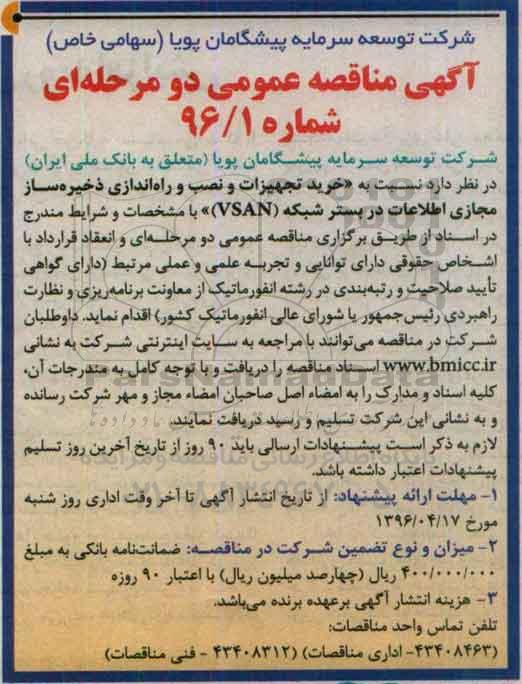 شرکت توسعه سرمایه پیشگامان پویا (سهامی خاص)
آگهی مناقصه عمومی دو مرحله‌ای
شماره ۹۶/۱
شرکت توسعه سرمایه پیشگامان پویا (متعلق به بانک ملی ایران)
در نظر دارد نسبت به «خرید تجهیزات و نصب و راه‌اندازی ذخیره‌ساز
مجازی اطلاعات در بستر شبکه (VSAN)» با مشخصات و شرایط مندرج
در اسناد از طریق برگزاری مناقصه عمومی دو مرحله‌ای و انعقاد قرارداد با
اشخاص حقوقی دارای توانایی و تجربه علمی و عملی مرتبط (دارای گواهی
تأیید صلاحیت و رتبه‌بندی در رشته انفورماتیک از معاونت برنامه‌ریزی و نظارت
راهبردی رئیس‌جمهور یا شورای عالی انفورماتیک کشور) اقدام نماید. داوطلبان
شرکت در مناقصه می‌توانند با مراجعه به سایت اینترنتی شرکت به نشانی
www.bmicc.ir اسناد مناقصه را دریافت و با توجه کامل به مندرجات آن،
کلیه اسناد و مدارک را به امضاء اصل صاحبان امضاء مجاز و مهر شرکت رسانده
و به نشانی این شرکت تسلیم و رسید دریافت نمایند.
لازم به ذکر است پیشنهادات ارسالی باید ۹۰ روز از تاریخ آخرین روز تسلیم
پیشنهادات اعتبار داشته باشد.
۱- مهلت ارائه پیشنهاد: از تاریخ انتشار آگهی تا آخر وقت اداری روز شنبه
مورخ ۱۳۹۶/۰۴/۱۷
۲- میزان و نوع تضمین شرکت در مناقصه: ضمانت‌نامه بانکی به مبلغ
۴۰۰/۰۰۰/۰۰۰ ریال (چهارصد میلیون ریال) با اعتبار ۹۰ روزه
۳- هزینه انتشار آگهی برعهده برنده می‌باشد.
تلفن تماس واحد مناقصات:
(۴۳۴۰۸۴۶۳- اداری مناقصات) (۴۳۴۰۸۳۱۲ - فنی مناقصات)